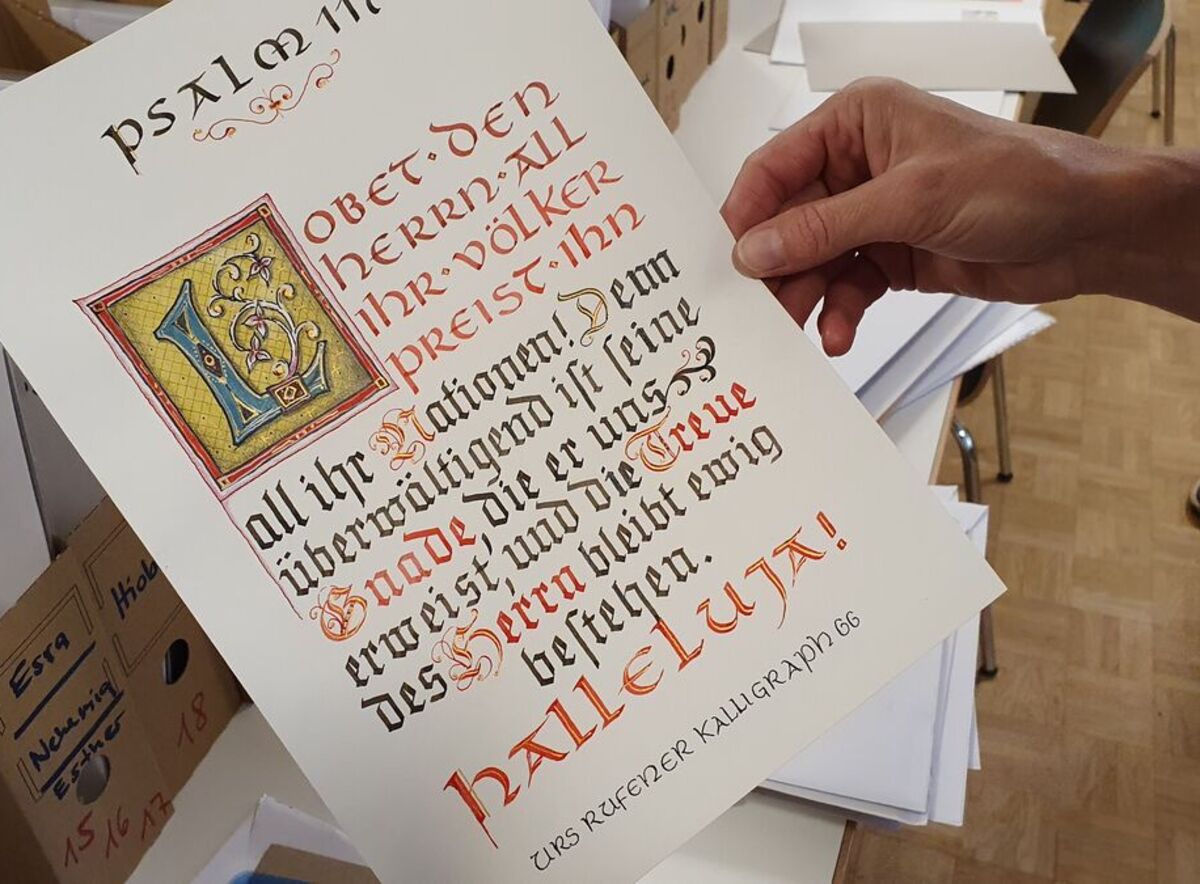 PSALM 117
LOBET·DEN
HERRN·ALL
IHR·VÖLKER
PREIST·IHN
all ihr Nationen! Denn
überwältigend iſt ſeine
Gnade, die er uns
erweist, und die Treue
des Herrn bleibt ewig
beſtehen.
HALLELUJA!
URS RUFENER KALLIGRAPH 66
Esra
Nehemia
Esther
15 16 17
Hiob
18